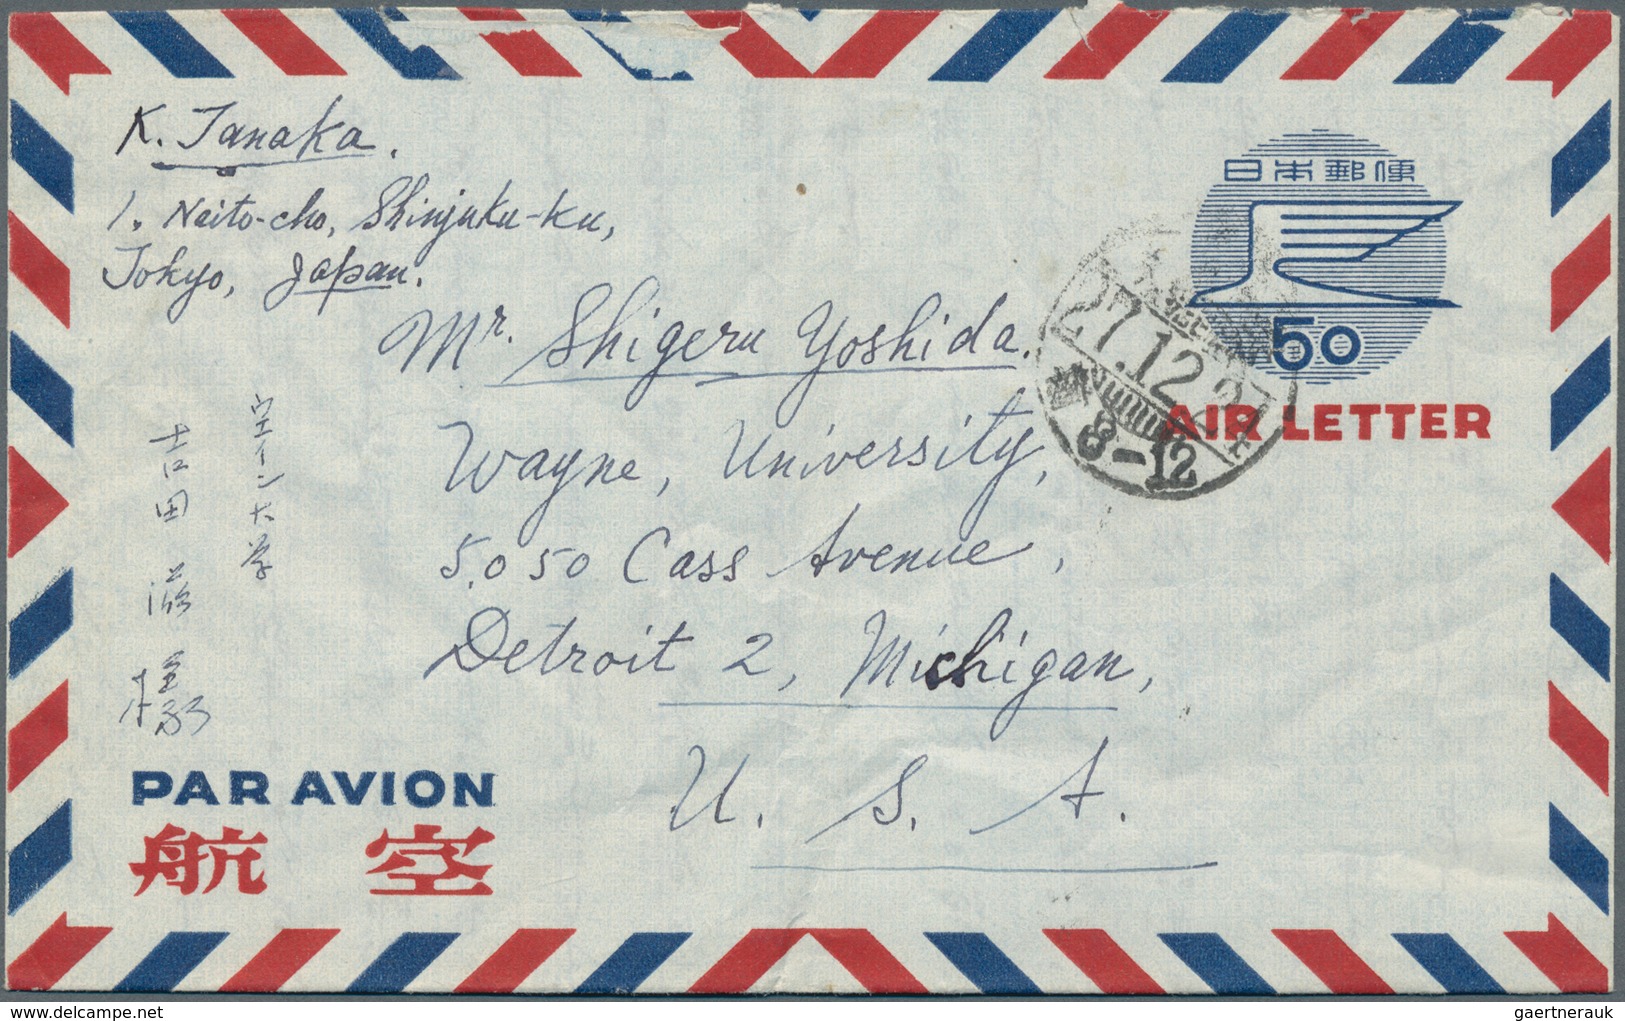 K. Tanaka.
1. Naito-cho, Shinjuku-ku,
Tokyo, Japan.
日本郵便
50
AIR LETTER
27.12.2
8-12
Mr. Shigeru Yoshida.
Wayne, University,
5050 Cass Avenue,
Detroit 2, Michigan,
U. S. A.
ウエーン大学
吉田滋様
PAR AVION
航空
gaertnerauk